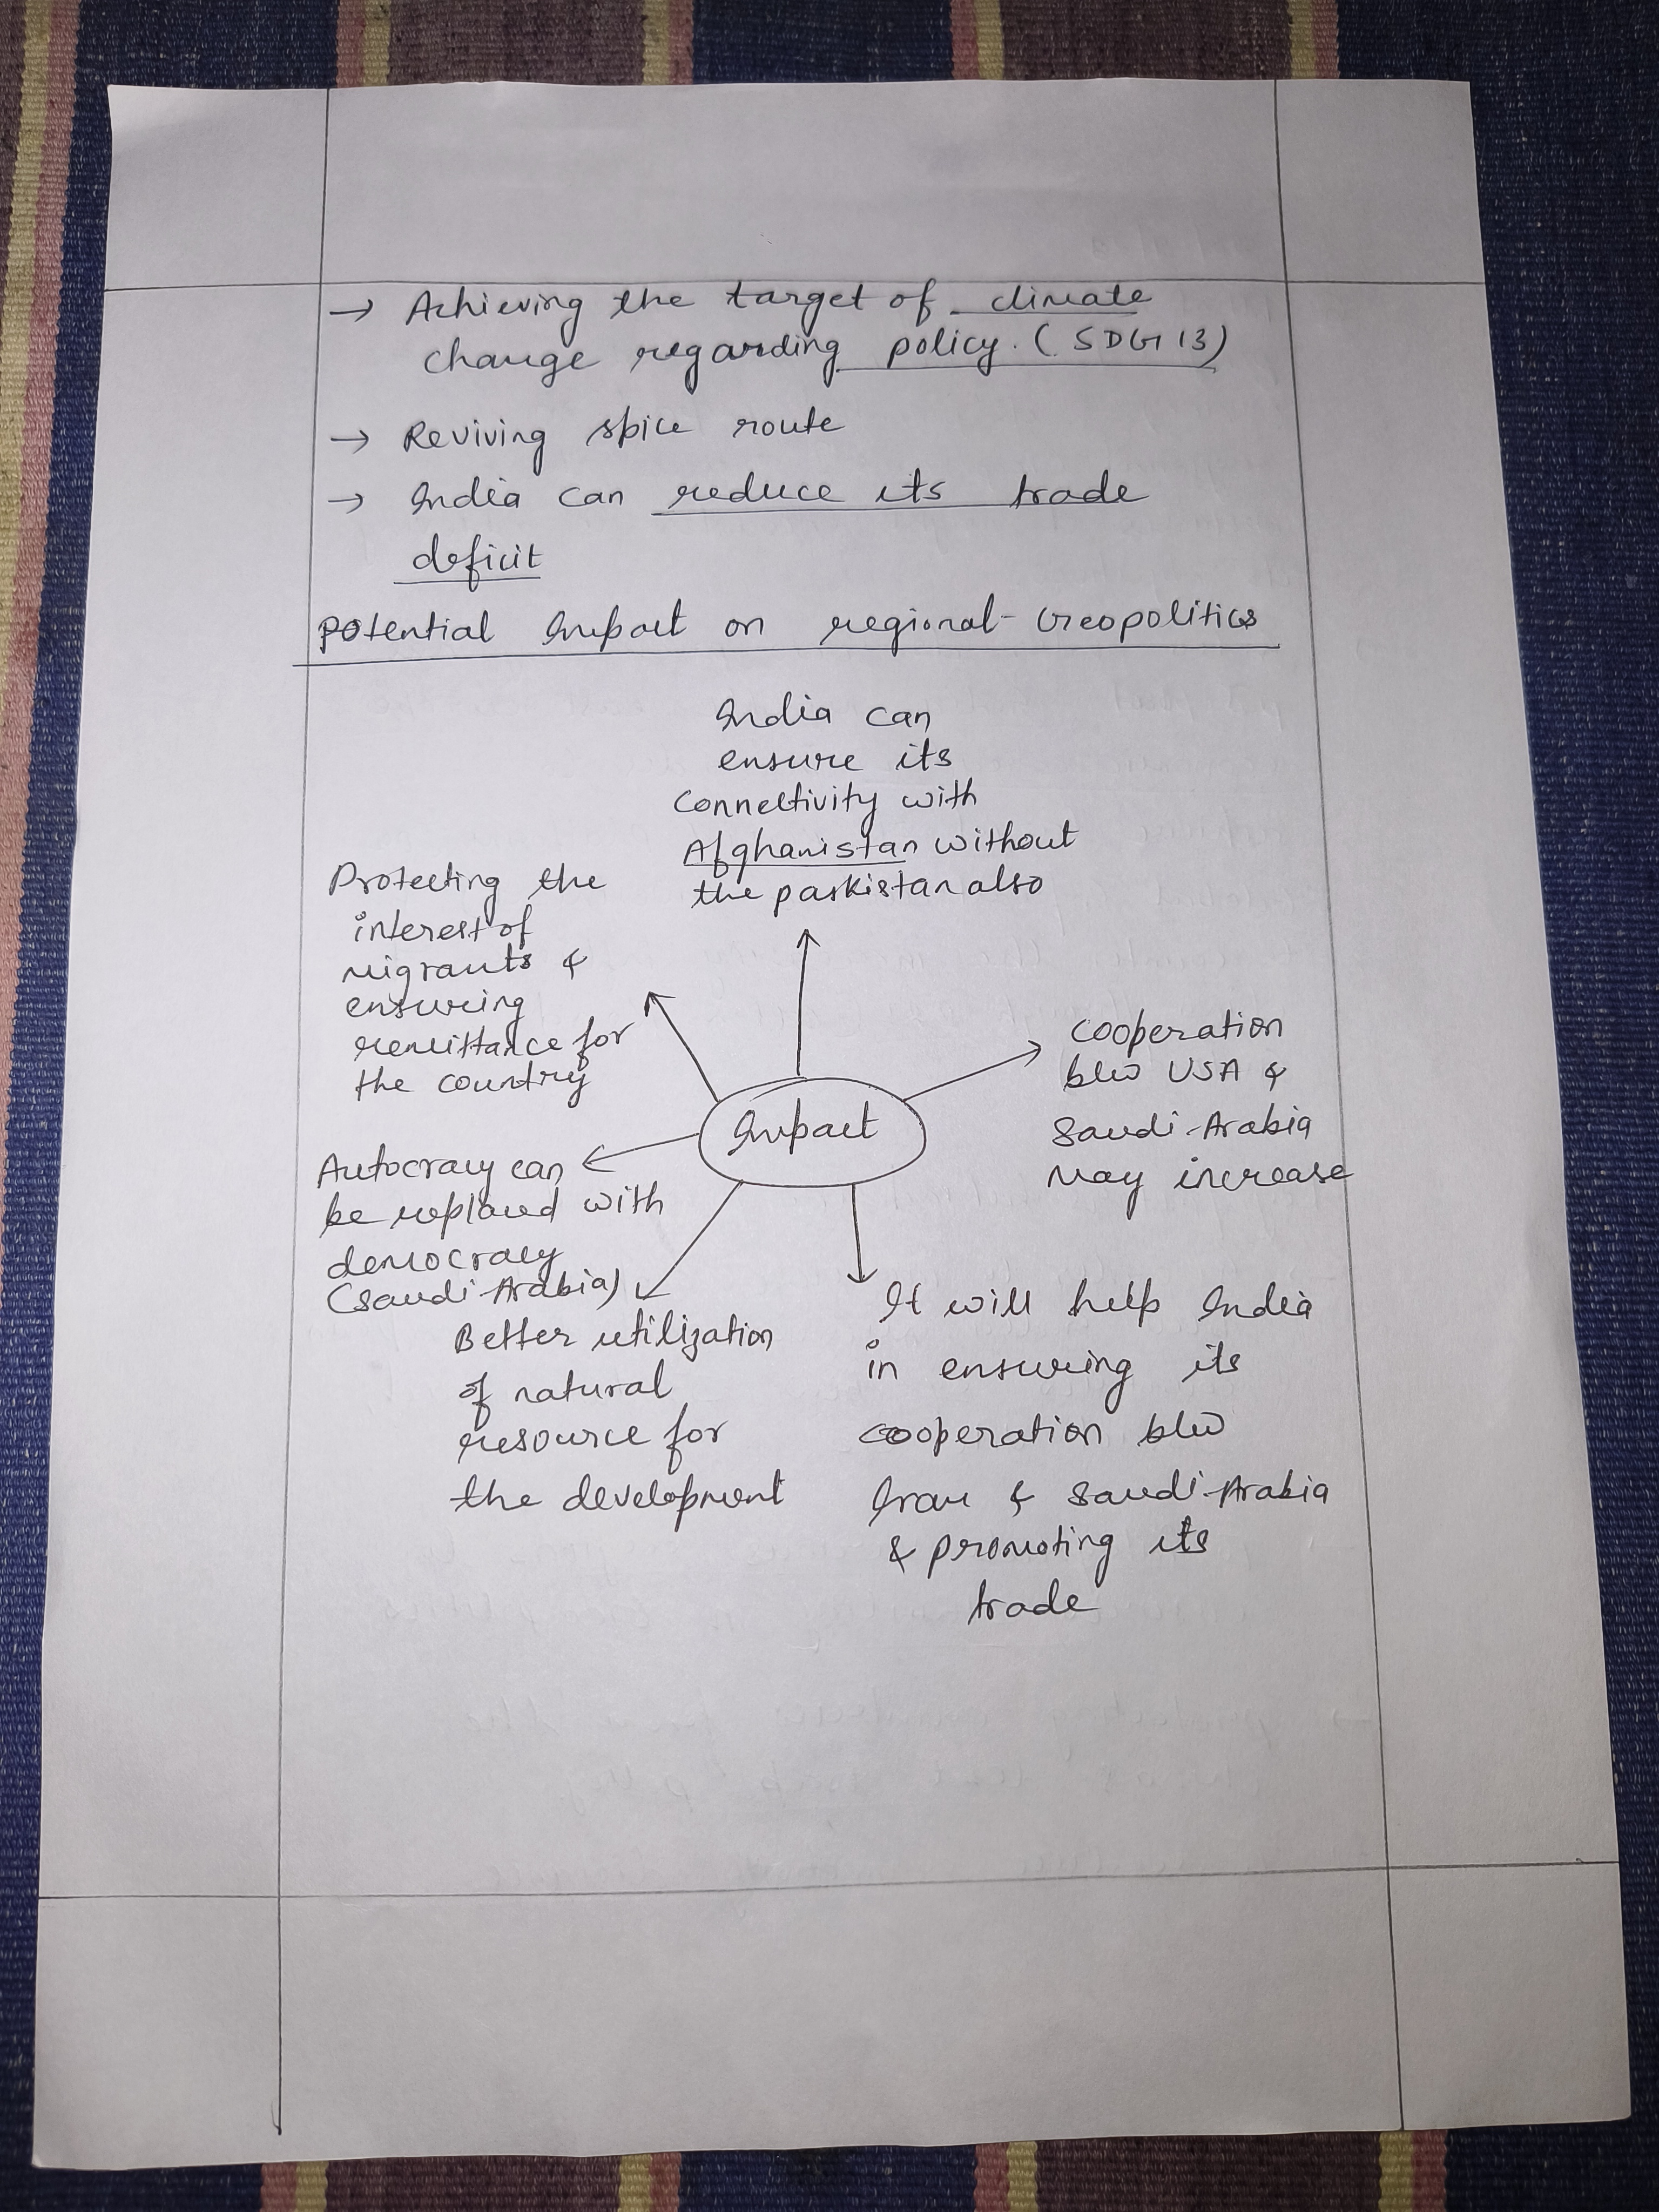 → Achieving the target of climate
change regarding policy. (SDG 13)
→ Reviving spice route
→ India can reduce its trade
deficit
Potential Impact on regional-Geopolitics
India can
ensure its
Connectivity with
Afghanistan without
the paskistan also
Protecting the
interest of
migrants &
ensuring
remittance for
the country
Cooperation
b/w USA &
Saudi-Arabia
May increase
Impact
Autocracy can
be replaced with
democracy
(Saudi-Arabia)
Better utilization
of natural
resource for
the development
It will help India
in ensuring its
cooperation b/w
Iran & Saudi-Arabia
& promoting its
trade